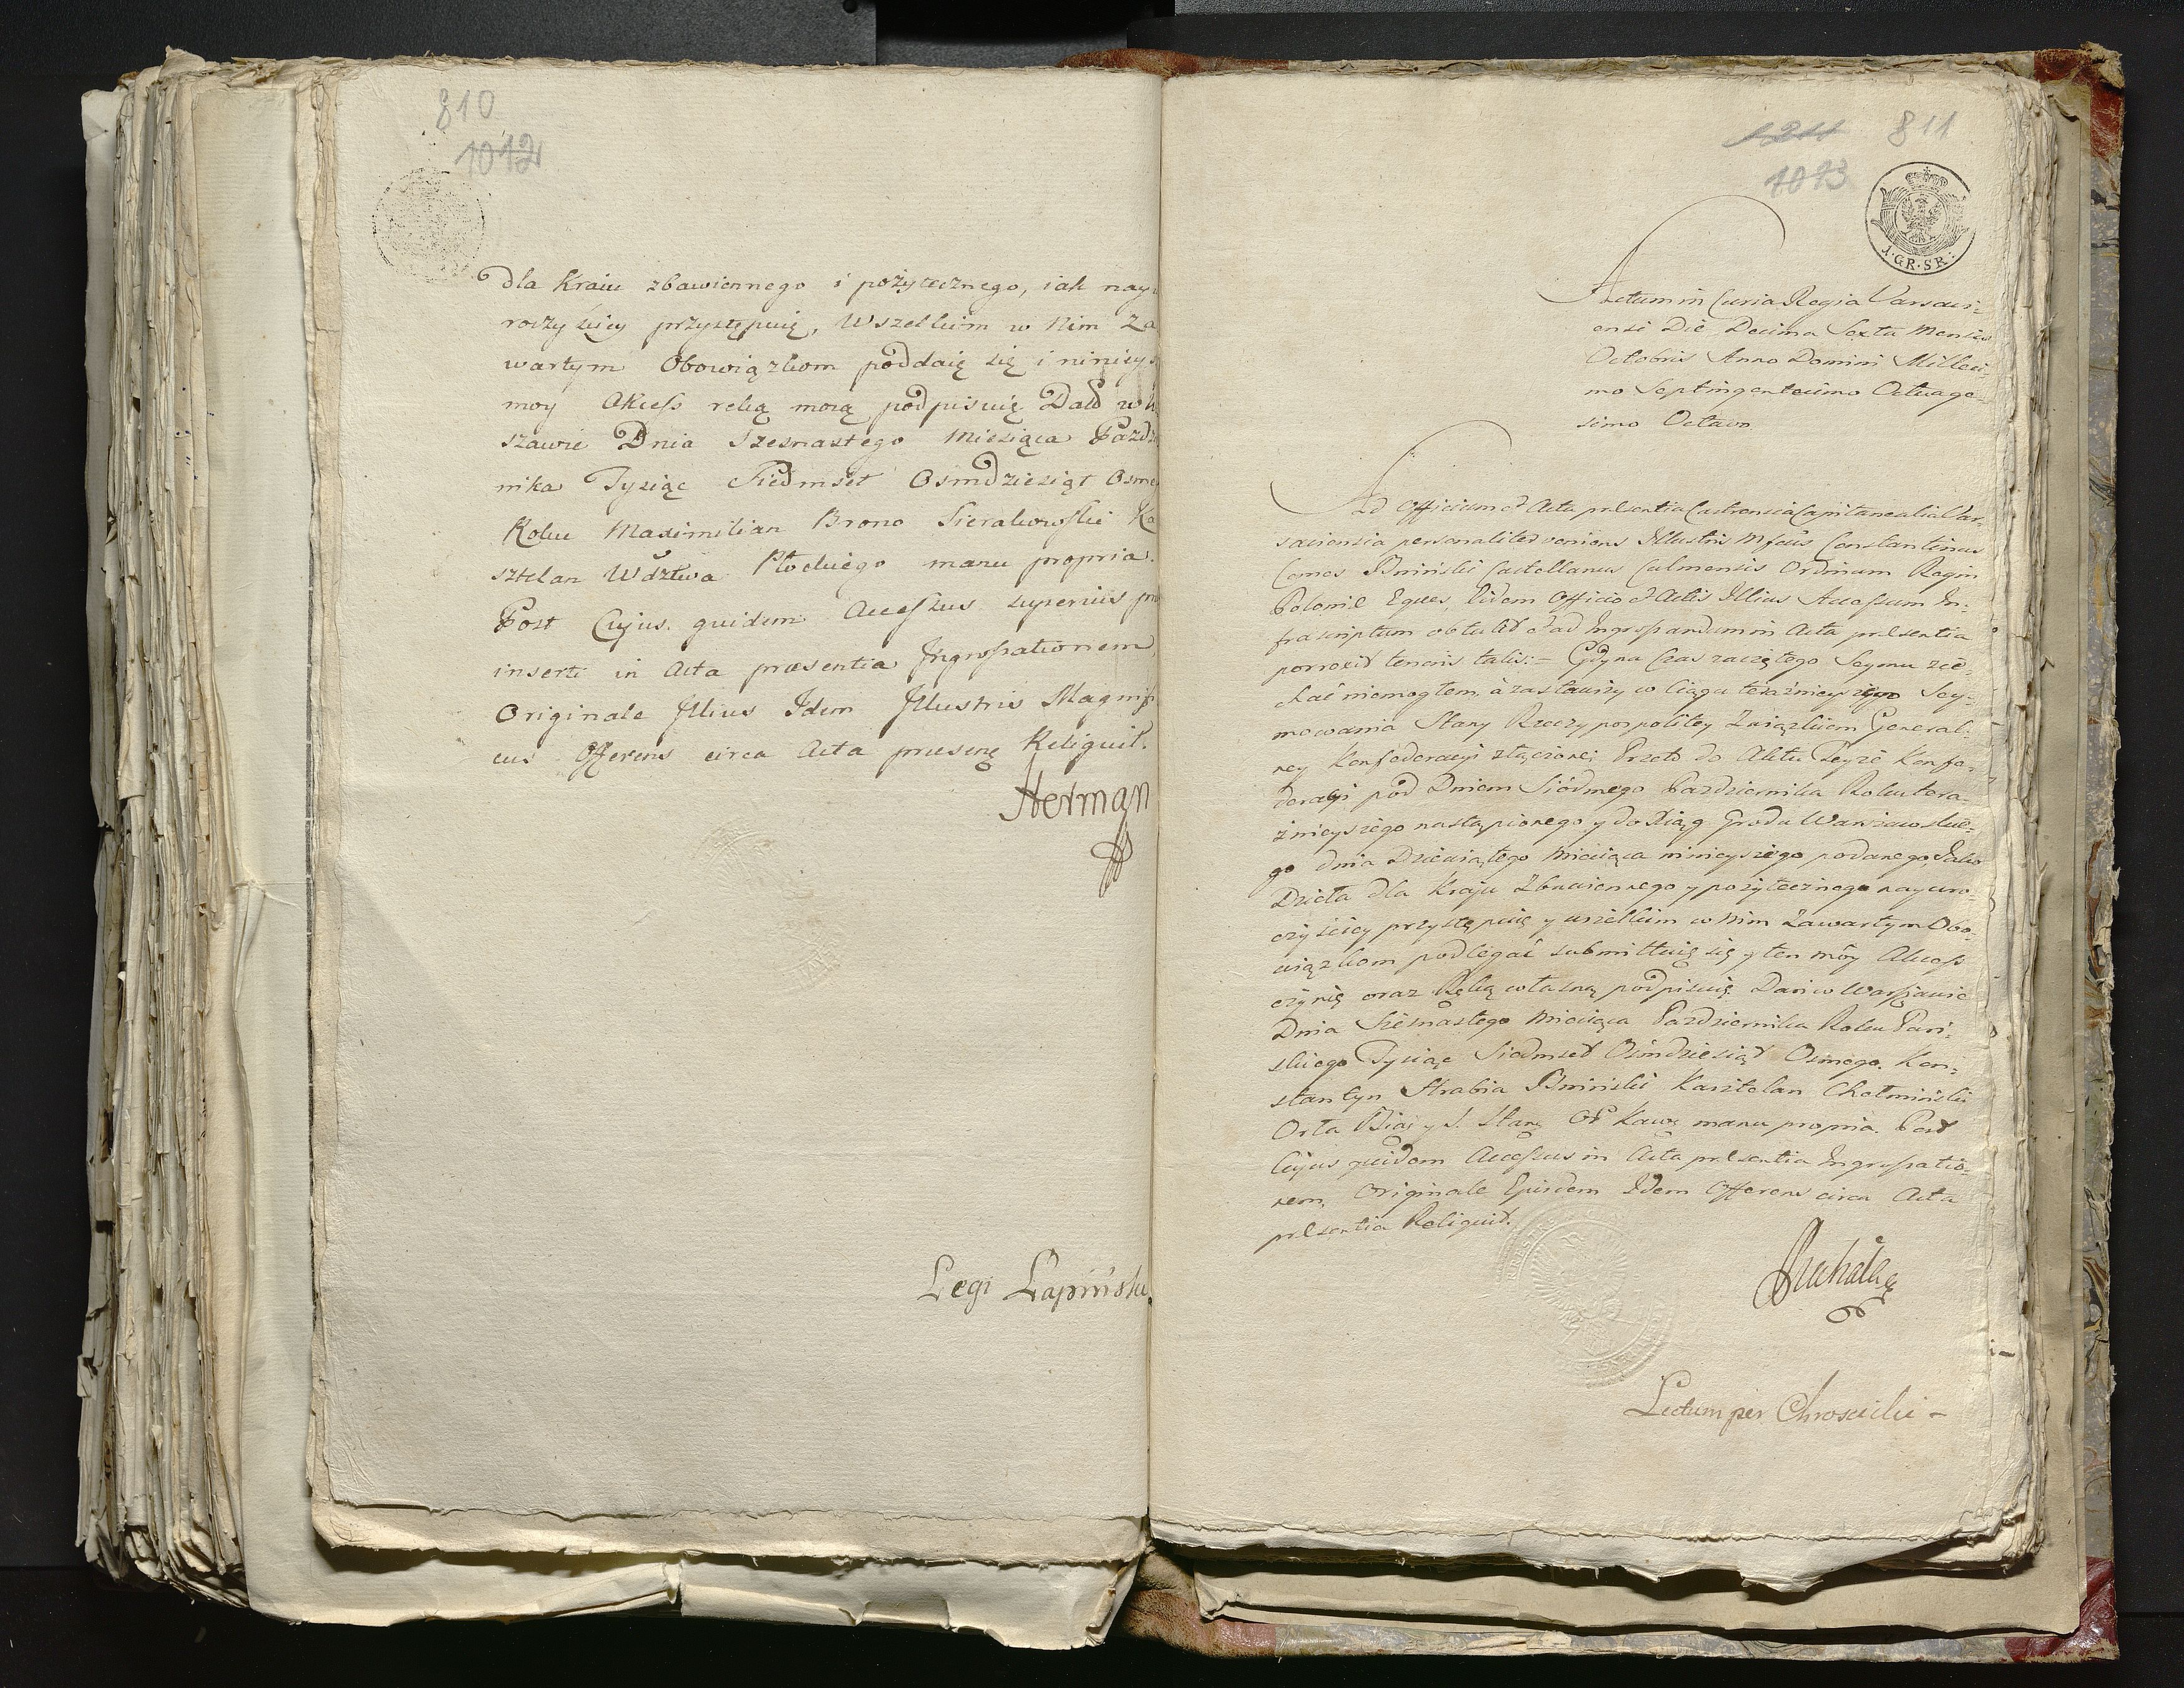 810
1012
dla Kraiu zbawiennego i pożytecznego, iak nayu
roczyściey przystępuię, Wszelkim w Nim Za
wartym Obowiązkom poddaię się i ninieys
moy Akcess ręką moią podpisuię Datt w W
szawie Dnia Szesnastego Miesiąca Pazdz
nika Tysiąc Siedmset Osmdziesiąt Osme
Roku Maximilian Brono Sierakowski Ka
sztelan Wdztwa Płockiego manu propria.
Post Cujus quidem Accessus superius pra
inserti in Acta præsentia Ingrossationem
Originale Illius Idem Illustris Magnifi
cus Offerens circa Acta præsens Reliquit.
Herman
Legi Łapiński
1211 811
1013
1.GR.SR:
Actum in Curia Regia Varsavi-
ensi Die Decima Sexta Mensis
Octobris Anno Domini Millesi-
mo Septingentesimo Octuage-
simo Octavo
Ad Officium et Acta præsentia Castrensia Capitanealia Var-
saviensia personaliter veniens Illustris Mfcus Constantinus
Comes Bninski Castellanus Culmensis Ordinum Regni
Poloniæ Eques, Eidem Officio et Actis Illius Accessum In-
frascriptum obtulit et ad Ingrossandum in Acta præsentia
porrexit tenoris talis: = Gdy na Czas zaczętego Seymu zie-
chać niemogłem, à zastawszy w Ciągu teraźnieyszego Sey-
mowania Stany Rzeczypospolitey Związkiem General-
ney Konfederacyi złączone; Przeto do Aktu Teyże Konfe-
deracyi pod Dniem Siódmego Pazdziernika Roku tera-
znieyszego nastąpionego y do Xiąg Grodu Warszawskie-
go dnia Dziewiątego Miesiąca ninieyszego podanego, Jako
Dzieła dla Kraju Zbawiennego y pożytecznego nayuro-
czyściey przystępuię y wszelkim w Nim Zawartym Obo-
wiązkom podlegać submittuię się y ten móy Akcess
czynię oraz Ręką własną podpisuię. Dan w Warszawie
Dnia Szesnastego Miesiąca Pazdziernika Roku Pań-
skiego Tysiąc Siedmset Osmdziesiąt Osmego. Kon-
stantyn Hrabia Bniński Kasztelan Chełmiński
Orła Biał: y S. Stan: Or Kawr manu propria. Post
Cujus quidem Accessus in Acta præsentia Ingrossatio-
nem, Originale Ejusdem Idem Offerens circa Acta
præsentia Reliquit.
Lectum per Chroscicki –